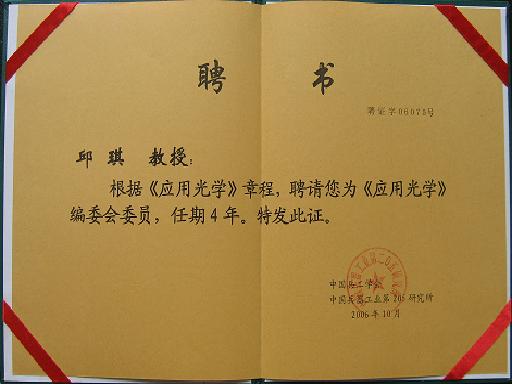 聘 书
聘证字06075号
邱 琪 教授：
根据《应用光学》章程，聘请您为《应用光学》
编委会委员，任期4年。特发此证。
中国兵工学会
中国兵器工业第205研究所
2006年10月